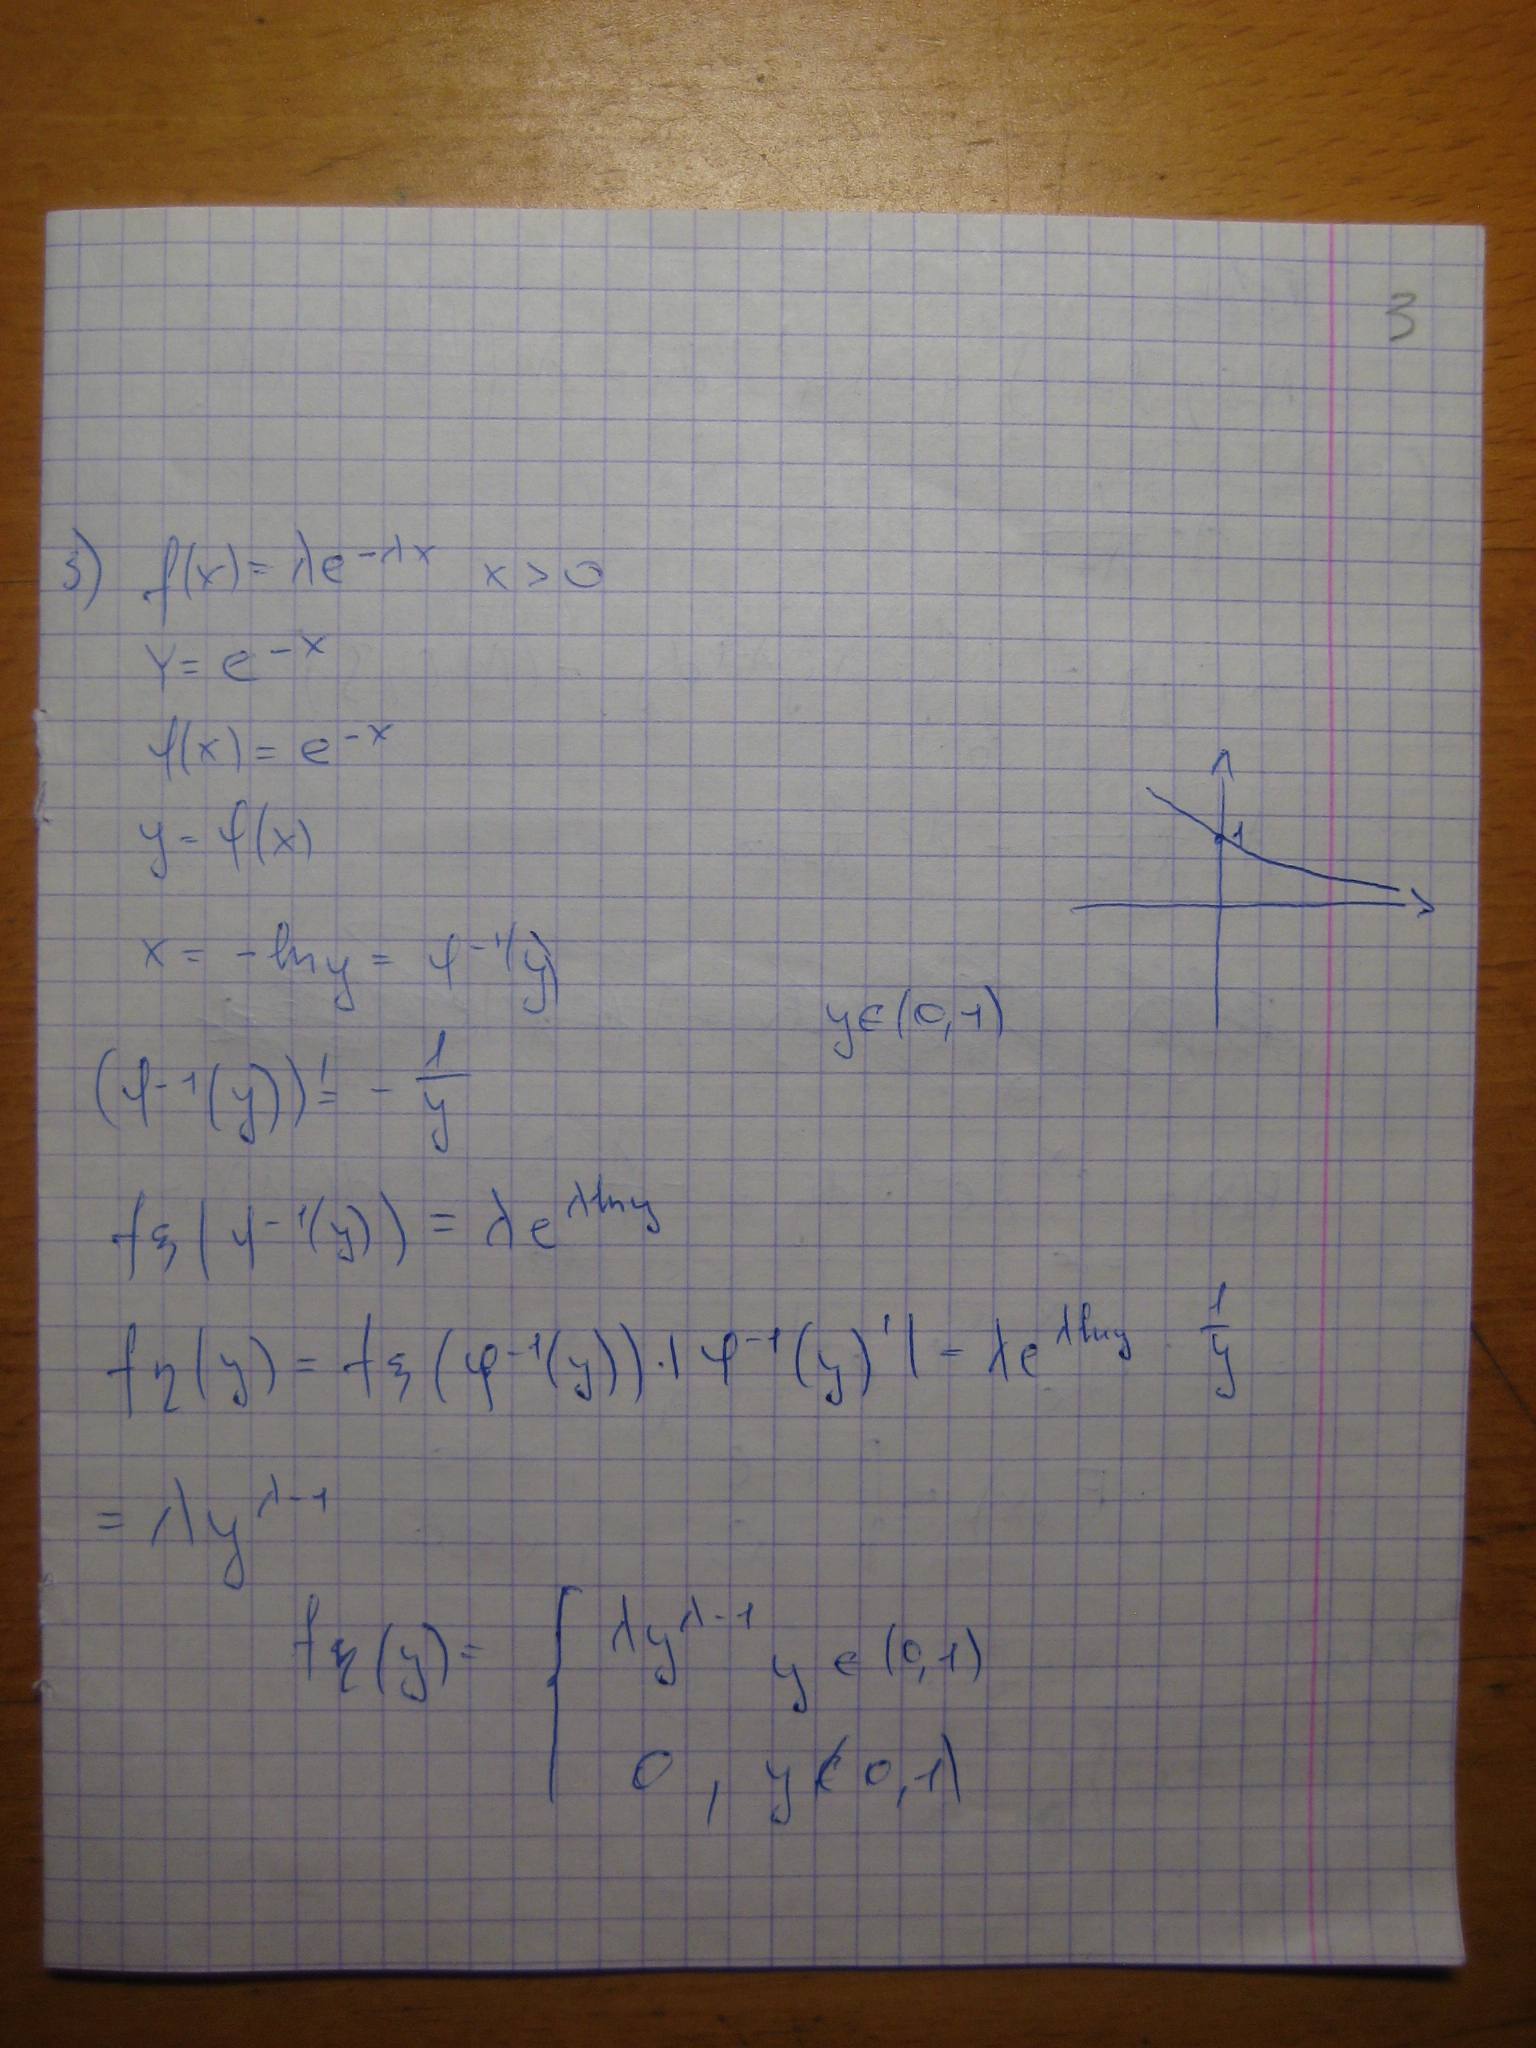 3
3) f(x) = λe^{-λx} x > 0
Y = e^{-x}
φ(x) = e^{-x}
y = φ(x)
1
x = -ln y = φ^{-1}(y)
y ∈ (0,1)
(φ^{-1}(y))' = - 1/y
f_ξ(φ^{-1}(y)) = λe^{λ ln y}
f_η(y) = f_ξ(φ^{-1}(y)) · |φ^{-1}(y)'| = λe^{λ ln y} · 1/y
= λy^{λ-1}
f_η(y) = { λy^{λ-1} y ∈ (0,1)
0, y ∉ (0,1)